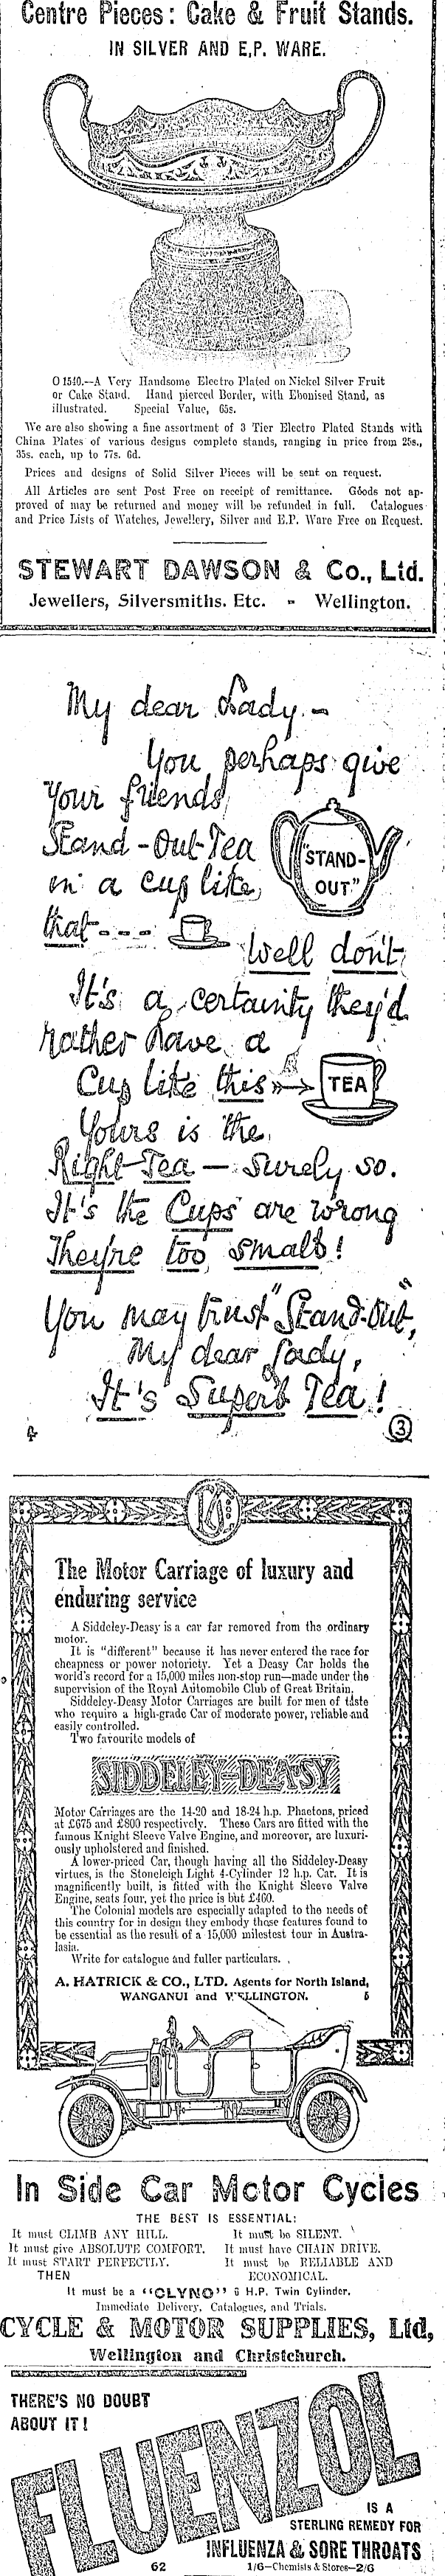 Centre Pieces: Cake & Fruit Stands.
IN SILVER AND E.P. WARE.
O 1540.—A Very Handsome Electro Plated on Nickel Silver Fruit
or Cake Stand. Hand pierced Border, with Ebonised Stand, as
illustrated. Special Value, 65s.
We are also showing a fine assortment of 3 Tier Electro Plated Stands with
China Plates of various designs complete stands, ranging in price from 25s.,
35s. each, up to 77s. 6d.
Prices and designs of Solid Silver Pieces will be sent on request.
All Articles are sent Post Free on receipt of remittance. Goods not ap-
proved of may be returned and money will be refunded in full. Catalogues
and Price Lists of Watches, Jewellery, Silver and E.P. Ware Free on Request.
STEWART DAWSON & Co., Ltd.
Jewellers, Silversmiths. Etc. - Wellington.
My dear Lady.-
You perhaps give
your friends
Stand-Out-Tea
in a cup like
that---
"STAND-
OUT."
Well don't
It's a certainty they'd
rather have a
Cup like this
TEA
Yours is the
Right-Tea — Surely so.
It's the Cups are wrong
They're too small!
You may trust "Stand-Out",
My dear Lady,
It's Superb Tea!
3
The Motor Carriage of luxury and
enduring service
A Siddeley-Deasy is a car far removed from the ordinary
motor.
It is "different" because it has never entered the race for
cheapness or power notoriety. Yet a Deasy Car holds the
world's record for a 15,000 miles non-stop run—made under the
supervision of the Royal Automobile Club of Great Britain.
Siddeley-Deasy Motor Carriages are built for men of taste
who require a high-grade Car of moderate power, reliable and
easily controlled.
Two favourite models of
SIDDELEY-DEASY
Motor Carriages are the 14-20 and 18-24 h.p. Phaetons, priced
at £675 and £800 respectively. These Cars are fitted with the
famous Knight Sleeve Valve Engine, and moreover, are luxuri-
ously upholstered and finished.
A lower-priced Car, though having all the Siddeley-Deasy
virtues, is the Stoneleigh Light 4-Cylinder 12 h.p. Car. It is
magnificently built, is fitted with the Knight Sleeve Valve
Engine, seats four, yet the price is but £460.
The Colonial models are especially adapted to the needs of
this country for in design they embody those features found to
be essential as the result of a 15,000 milestest tour in Austra-
lasia.
Write for catalogue and fuller particulars.
A. HATRICK & CO., LTD. Agents for North Island,
WANGANUI and WELLINGTON. 5
In Side Car Motor Cycles
THE BEST IS ESSENTIAL:
It must CLIMB ANY HILL. It must be SILENT.
It must give ABSOLUTE COMFORT. It must have CHAIN DRIVE.
It must START PERFECTLY. It must be RELIABLE AND
THEN ECONOMICAL.
It must be a "CLYNO" 6 H.P. Twin Cylinder.
Immediate Delivery, Catalogues, and Trials.
CYCLE & MOTOR SUPPLIES, Ltd,
Wellington and Christchurch.
THERE'S NO DOUBT
ABOUT IT!
FLUENZOL
IS A
STERLING REMEDY FOR
INFLUENZA & SORE THROATS
62 1/6—Chemists & Stores—2/6